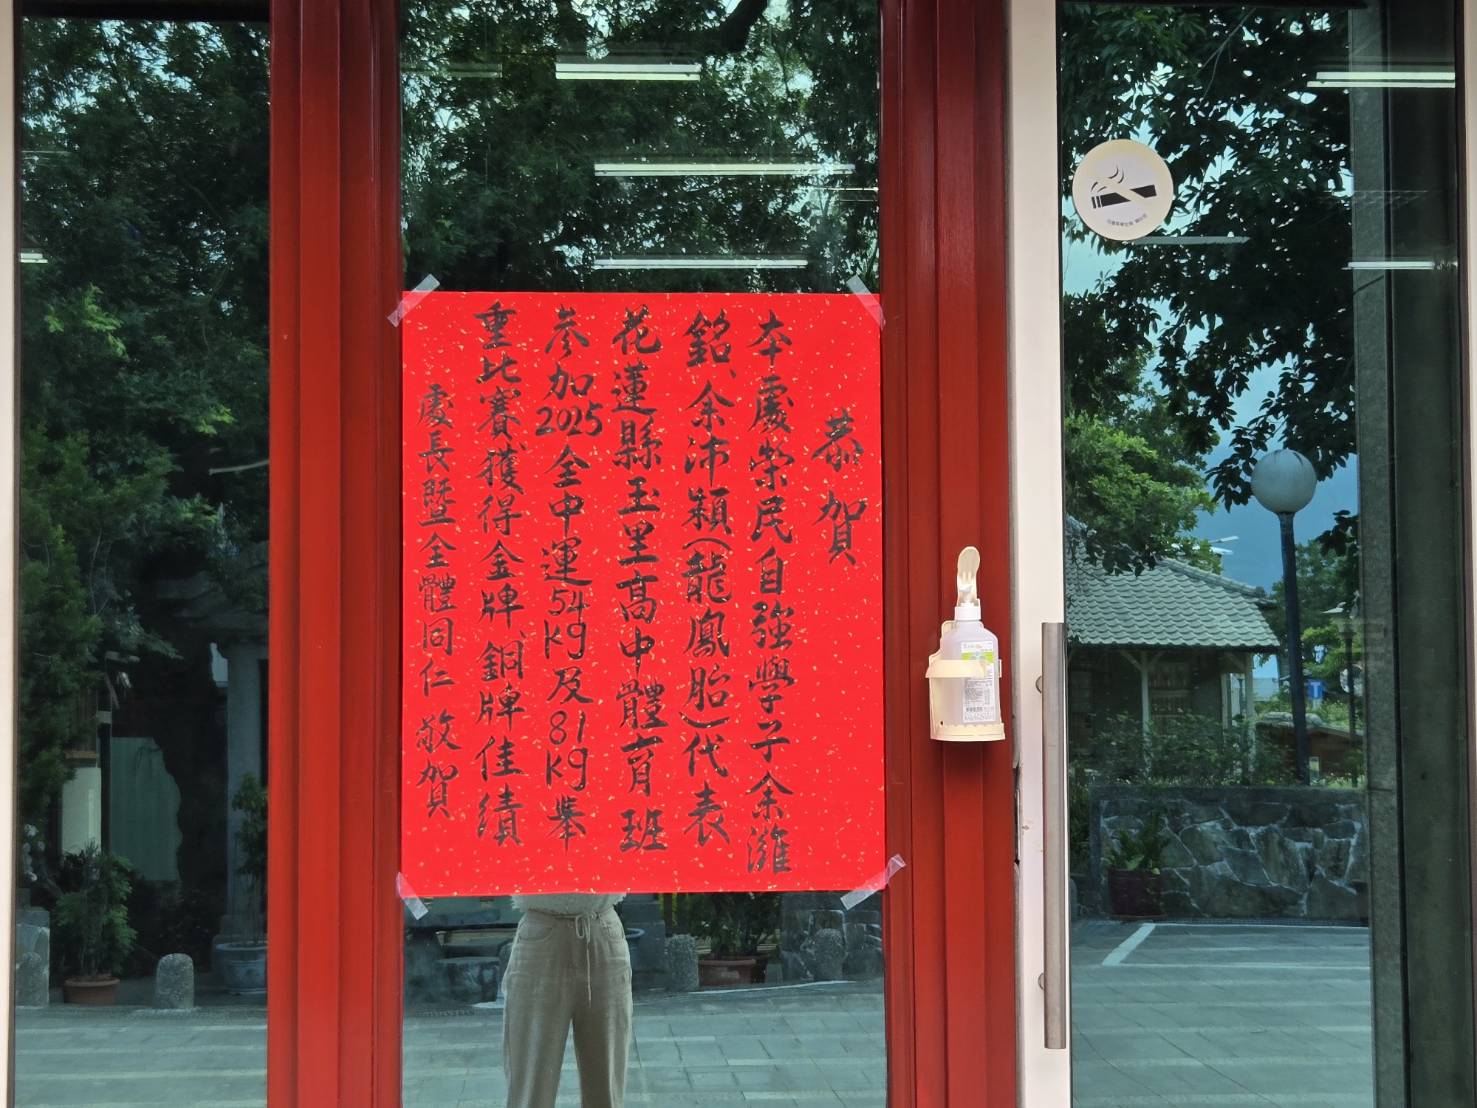 恭賀
本處榮民自強學子余濰
銘、余沛潁(龍鳳胎)代表
花蓮縣玉里高中體育班
參加2025全中運54kg及81kg舉
重比賽獲得金牌、銅牌佳績
處長暨全體同仁 敬賀